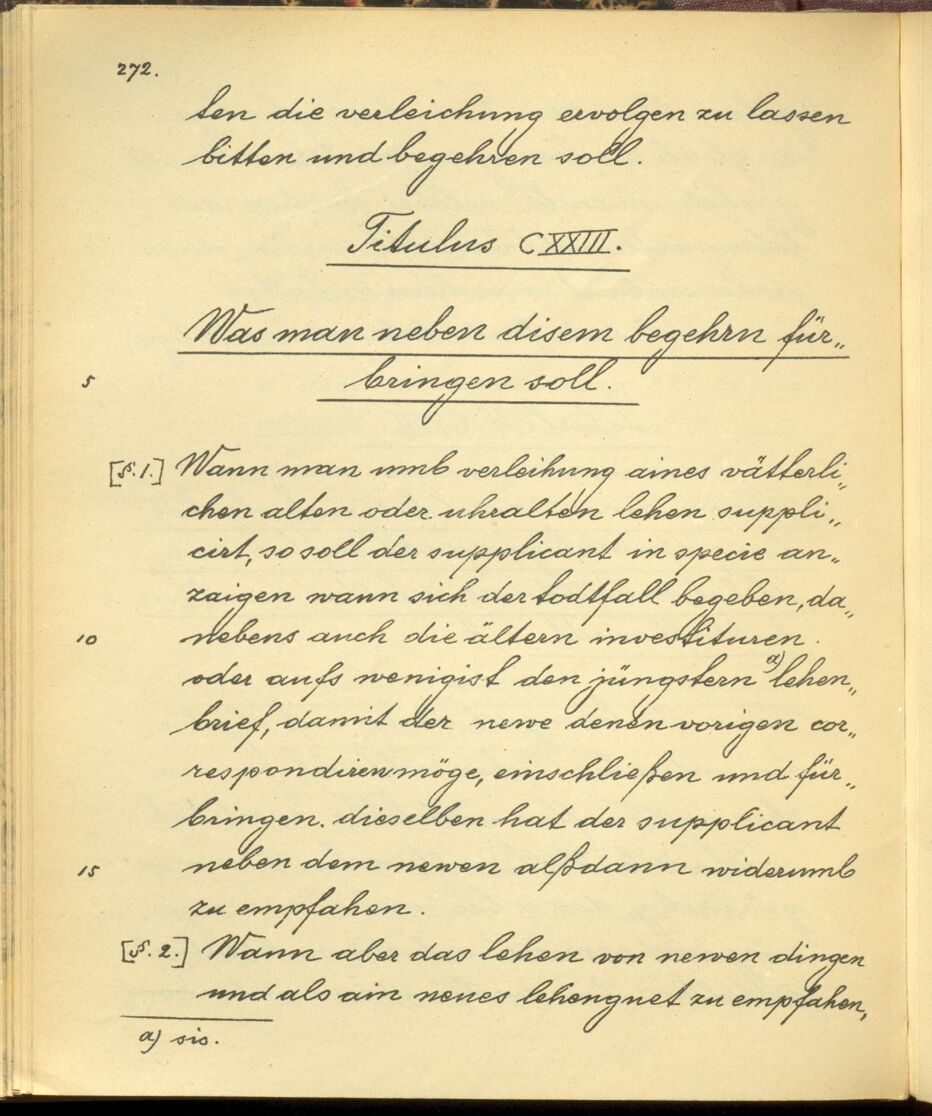 272.
ten die verleichung ervolgen zu lassen
bitten und begehren soll.
Titulus CXXIII.
Was man neben disem begehrn für„
5 bringen soll.
[§.1.] Wann man umb verleihung aines vätterli„
chen alten oder uhralten lehen suppli„
cirt, so soll der supplicant in specie an„
zaigen wann sich der todtfall begeben, da„
10 nebens auch die ältern investituren.
oder aufs wenigist den jüngstern a) lehen„
brief, damit der newe denen vorigen cor„
respondiren möge, einschließen und für„
bringen. dieselben hat der supplicant
15 neben dem newen alßdann widerumb
zu empfahen.
[§.2.] Wann aber das lehen von newen dingen
und als ain neues lehenguet zu empfahen,
a) sic.